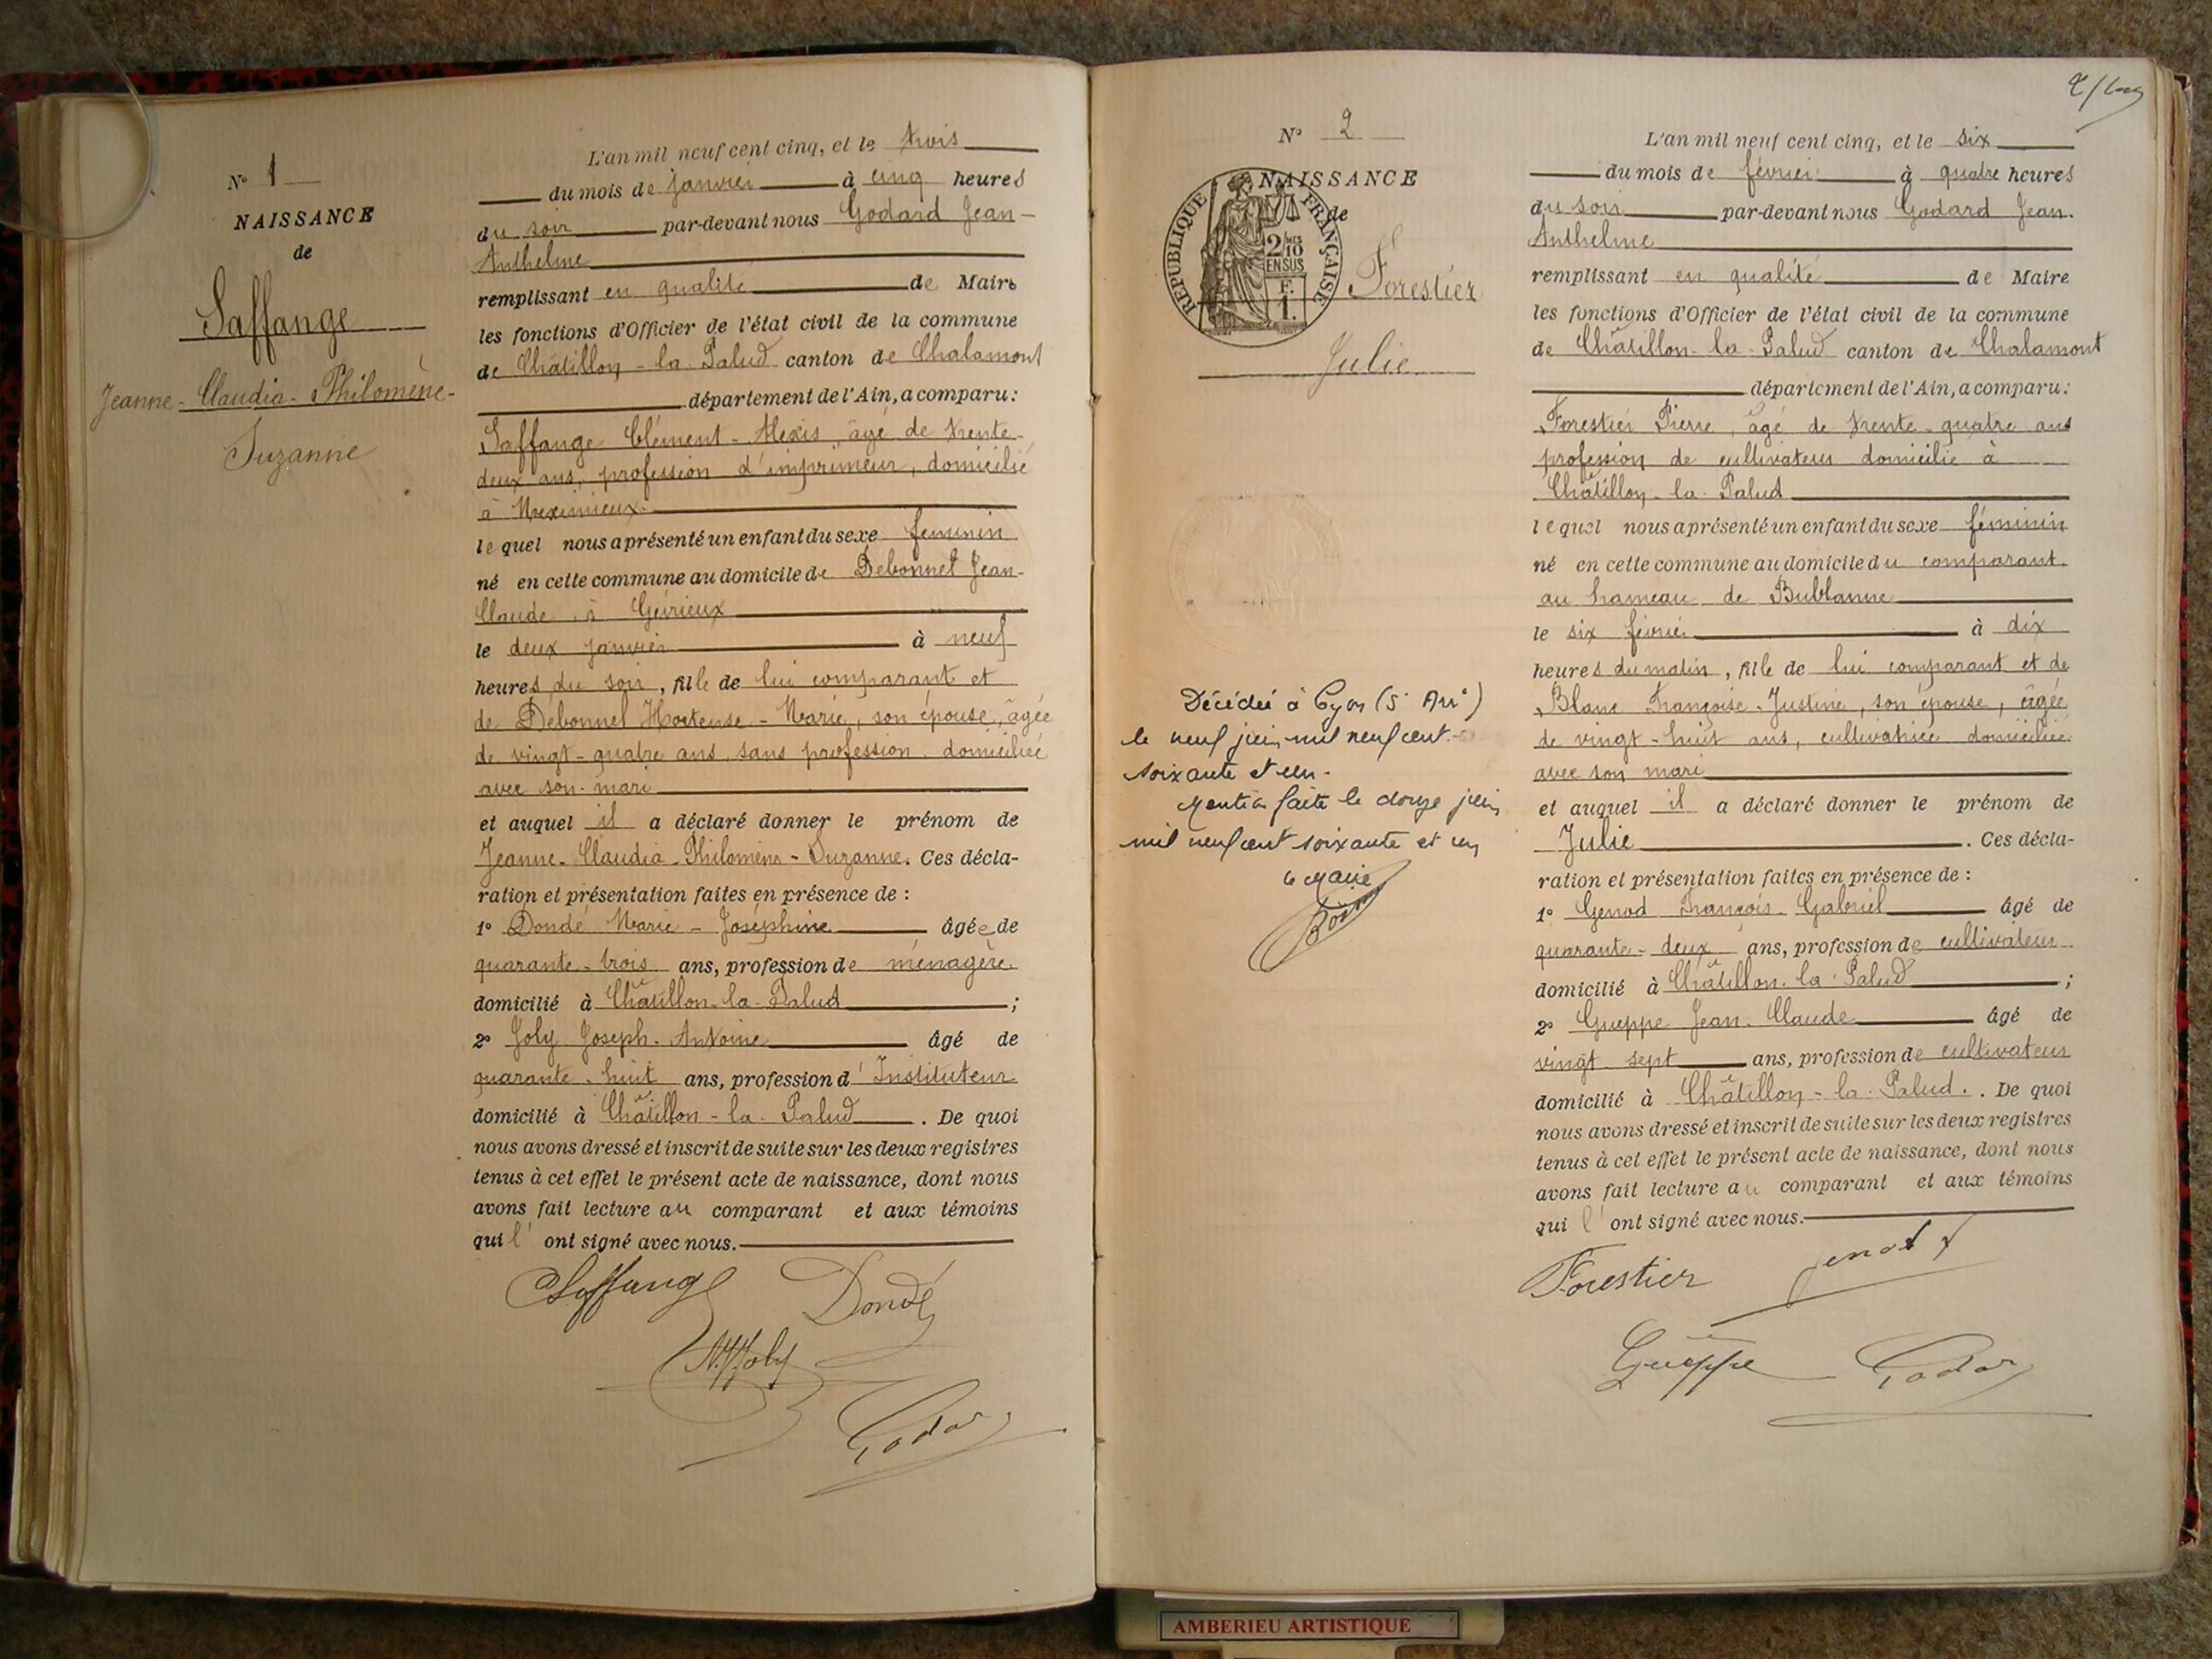 N° 1
NAISSANCE
de
Laffange
Jeanne-Claudia-Philomène-
Suzanne
L'an mil neuf cent cinq, et le trois
du mois de janvier à cinq heures
du soir par-devant nous Godard Jean-
Anthelme
remplissant en qualité de Maire
les fonctions d'Officier de l'état civil de la commune
de Châtillon-la-Palud canton de Chalamont
département de l'Ain, a comparu:
Laffange Clément-Alexis, âgé de trente-
deux ans, profession d'imprimeur, domicilié
à Meximieux.
lequel nous a présenté un enfant du sexe féminin
né en cette commune au domicile de Debonnet Jean-
Claude, à Gévrieux
le deux janvier à neuf
heures du soir, fille de lui comparant et
de Debonnel Hortense-Marie, son épouse, âgée
de vingt-quatre ans, sans profession, domiciliée
avec son mari
et auquel il a déclaré donner le prénom de
Jeanne-Claudia-Philomène-Suzanne. Ces décla-
ration et présentation faites en présence de :
1° Dondé Marie-Joséphine âgée de
quarante-trois ans, profession de ménagère
domicilié à Châtillon-la-Palud ;
2° Joly Joseph-Antoine âgé de
quarante-huit ans, profession d'Instituteur
domicilié à Châtillon-la-Palud. De quoi
nous avons dressé et inscrit de suite sur les deux registres
tenus à cet effet le présent acte de naissance, dont nous
avons fait lecture au comparant et aux témoins
qui l'ont signé avec nous.
Laffange Dondé
Joly
Godard
N° 2
NAISSANCE
de
REPUBLIQUE FRANÇAISE
2/10
EN SUS
F.
1.
Forestier
Julie
Décédée à Lyon (5e Arrt)
le neuf juin mil neuf cent
soixante et un.
Mention faite le douze juin
mil neuf cent soixante et un
Le Maire
L'an mil neuf cent cinq, et le six
du mois de février à quatre heures
du soir par-devant nous Godard Jean-
Anthelme
remplissant en qualité de Maire
les fonctions d'Officier de l'état civil de la commune
de Châtillon-la-Palud canton de Chalamont
département de l'Ain, a comparu:
Forestier Pierre, âgé de trente-quatre ans
profession de cultivateur domicilié à
Châtillon-la-Palud
lequel nous a présenté un enfant du sexe féminin
né en cette commune au domicile du comparant
au hameau de Bublanne
le six février à dix
heures du matin, fille de lui comparant et de
Blanc Françoise-Justine, son épouse, âgée
de vingt-huit ans, cultivatrice domiciliée
avec son mari
et auquel il a déclaré donner le prénom de
Julie. Ces décla-
ration et présentation faites en présence de :
1° Genod François-Gabriel âgé de
quarante-deux ans, profession de cultivateur
domicilié à Châtillon-la-Palud ;
2° Gueppe Jean-Claude âgé de
vingt-sept ans, profession de cultivateur
domicilié à Châtillon-la-Palud. De quoi
nous avons dressé et inscrit de suite sur les deux registres
tenus à cet effet le présent acte de naissance, dont nous
avons fait lecture au comparant et aux témoins
qui l'ont signé avec nous.
Forestier Genod
Gueppe Godard
AMBERIEU ARTISTIQUE